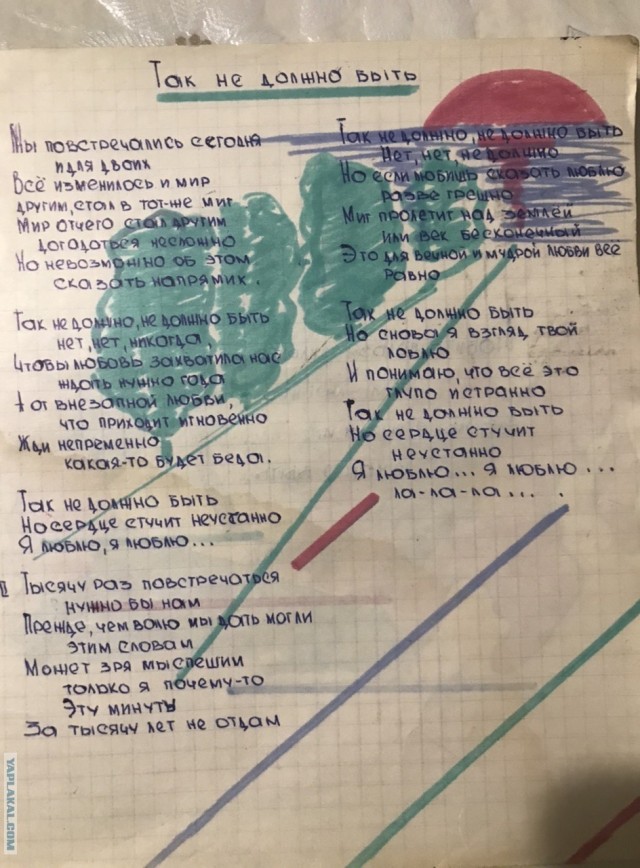 Так не должно быть
Мы повстречались сегодня
и для двоих
Всё изменилось и мир
другим, стал в тот-же миг
Мир отчего стал другим
догодоться несложно
Но невозможно об этом
сказать напрямик.
Так не должно, не должно быть
нет, нет, никогда,
Чтобы любовь захватила нас
ждать нужно года
А от внезапной любви,
что приходит мгновенно
Жди непременно
какая-то будет беда.
Так не должно быть
Но сердце стучит неустанно
Я люблю, я люблю...
II Тысячу раз повстречаться
нужно бы нам
Прежде, чем волю мы дать могли
этим словам
Может зря мы спешим
только я почему-то
Эту минуты
За тысячу лет не отдам
Так не должно, не должно быть
Нет, нет, не должно
Но если любишь сказать люблю
разве грешно
Миг пролетит над землёй
или век бесконечный
Это для вечной и мудрой любви всё
равно
Так не должно быть
Но снова я взгляд твой
ловлю
И понимаю, что всё это
глупо и странно
Так не должно быть
Но сердце стучит
неустанно
Я люблю... Я люблю...
ла-ла-ла... .
YAPLAKAL.COM